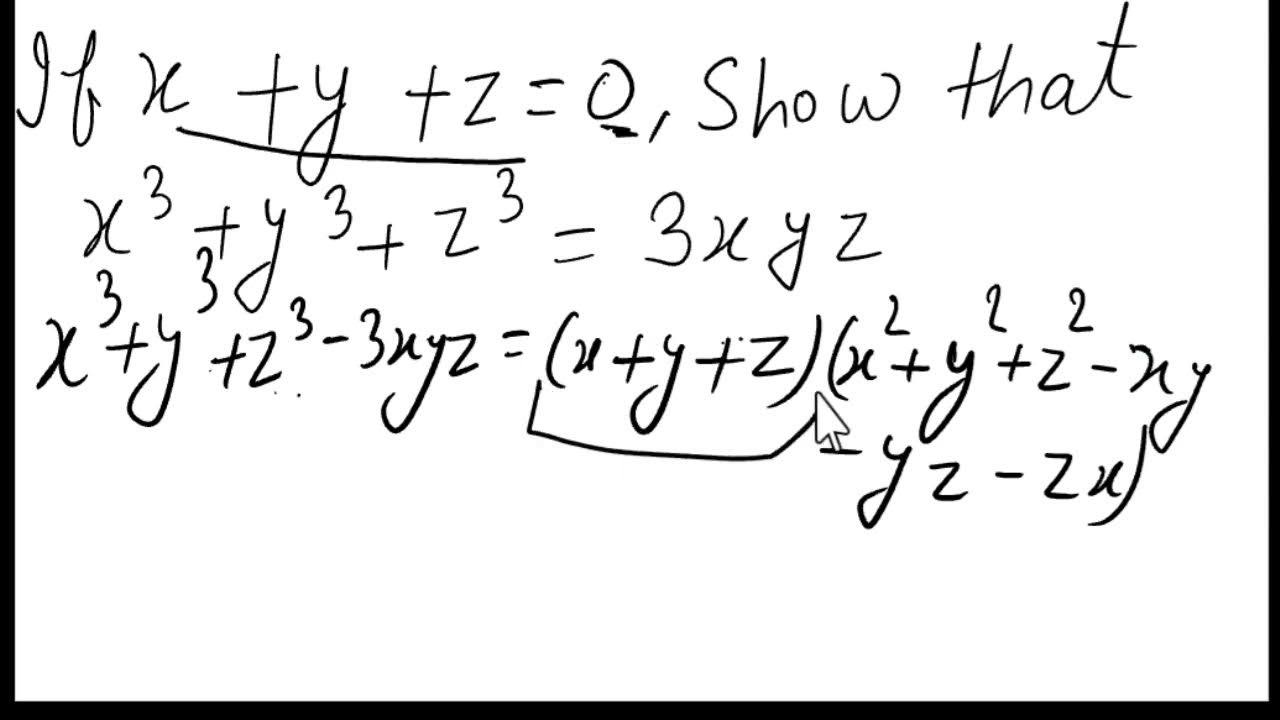 If x + y + z = 0, Show that
x³ + y³ + z³ = 3xyz
x³ + y³ + z³ - 3xyz = (x + y + z)(x² + y² + z² - xy
- yz - zx)